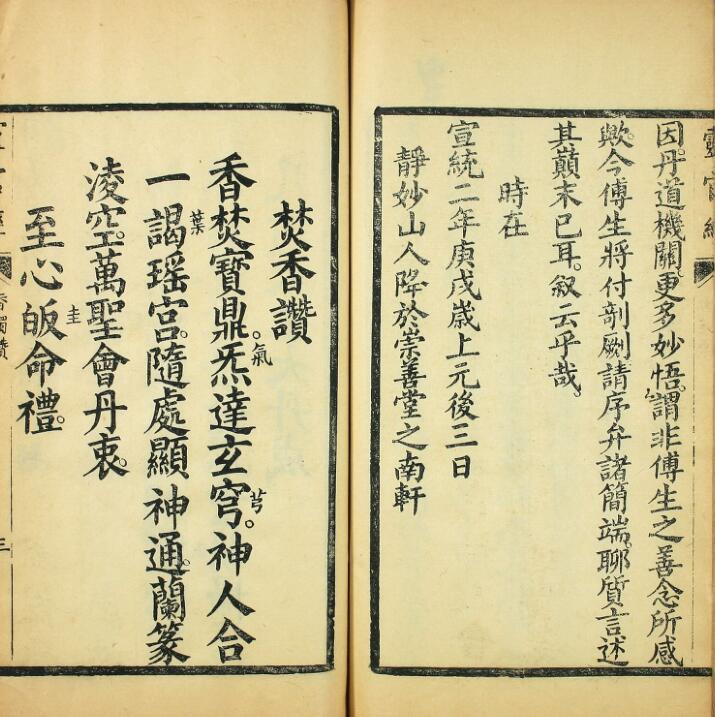 靈官經
因丹道機關。更多妙悟。謂非傅生之善念所感
歟。今傅生將付剞劂。請序弁諸簡端。聊質言述
其巔末已耳。叙云乎哉。
時在
宣統二年庚戌歲上元後三日
靜妙山人降於崇善堂之南軒
焚香讚
香焚寶鼎。炁氣達玄穹芎。神人合
一謁葉瑶宮。隨處顯神通。蘭篆
淩空。萬聖會丹衷。
至心皈圭命禮。
三